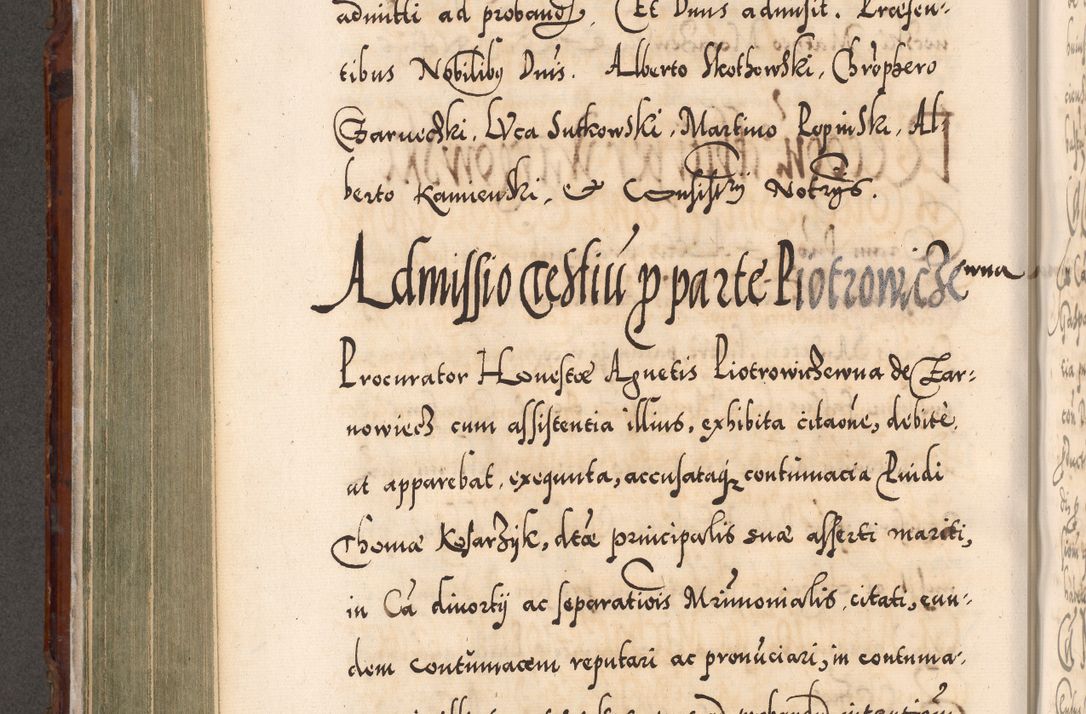 admitti ad proband. Et Dnus admisit. Praesen-
tibus Nobilibq Dnis. Alberto Skothowski, Chrophero
Czarnecki, LVca Sutkowski, Martino Ropinski, Al-
berto Kamienski, & Consistrÿ Notrÿs.
Admissio Testiũ p parte Piotrowiczewna
Procurator Honestæ Agnetis Piotrowiczewna de Czar-
nowiecz cum assistentia illius, exhibita citaõne, debitè,
ut apparebat, exequuta, accusataqz contũmacia Puidi
Thomæ Kosarzÿk, dtæ principalis suæ asserti mariti,
in Cã divortÿ ac separatiõis Mrimonialis, citati, eun-
dem contũmacem reputari ac pronũciari, in contuma-